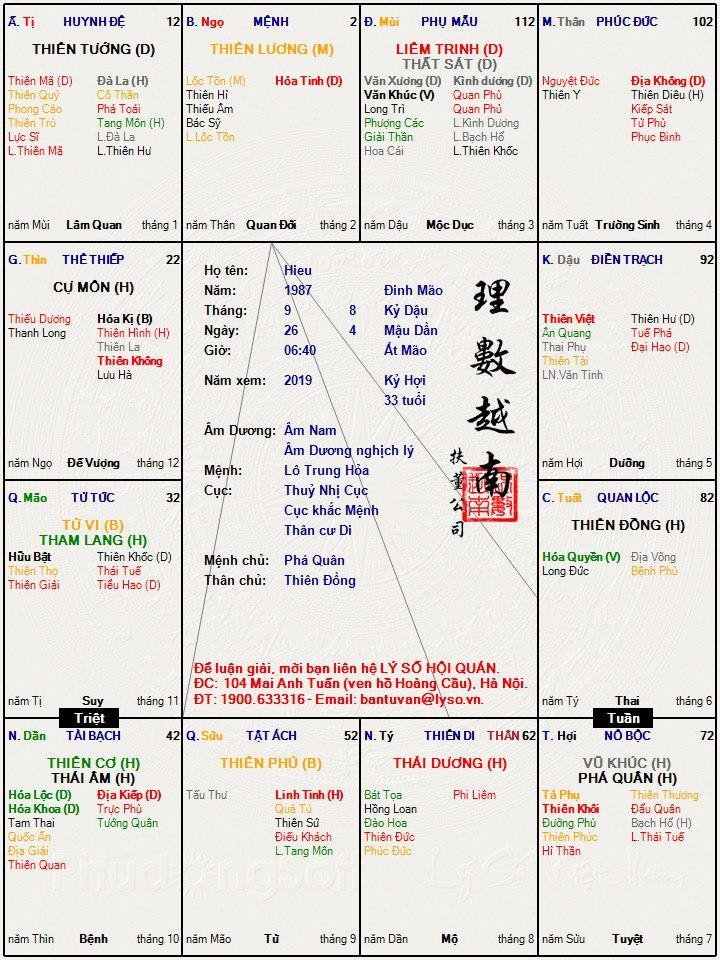 Ấ. Tị HUYNH ĐỆ 12
THIÊN TƯỚNG (D)
Thiên Mã (D) Đà La (H)
Thiên Quý Cô Thần
Phong Cáo Phá Toái
Thiên Trù Tang Môn (H)
Lực Sĩ L.Đà La
L.Thiên Mã L.Thiên Hư
năm Mùi Lâm Quan tháng 1
B. Ngọ MỆNH 2
THIÊN LƯƠNG (M)
Lộc Tồn (M) Hóa Tinh (D)
Thiên Hỉ
Thiếu Âm
Bác Sỹ
L.Lộc Tồn
năm Thân Quan Đới tháng 2
Đ. Mùi PHỤ MẪU 112
LIÊM TRINH (D)
THẤT SÁT (D)
Văn Xương (D) Kình dương (D)
Văn Khúc (V) Quan Phù
Long Trì Quan Phù
Phượng Các L.Kình Dương
Giải Thần L.Bạch Hổ
Hoa Cái L.Thiên Khốc
năm Dậu Mộc Dục tháng 3
M. Thân PHÚC ĐỨC 102
Nguyệt Đức Địa Không (D)
Thiên Y Thiên Diêu (H)
Kiếp Sát
Tử Phù
Phục Binh
năm Tuất Trường Sinh tháng 4
G. Thìn THÊ THIẾP 22
CỰ MÔN (H)
Thiếu Dương Hóa Kị (B)
Thanh Long Thiên Hình (H)
Thiên La
Thiên Không
Lưu Hà
năm Ngọ Đế Vượng tháng 12
Họ tên: Hieu
Năm: 1987 Đinh Mão
Tháng: 9 8 Kỷ Dậu
Ngày: 26 4 Mậu Dần
Giờ: 06:40 Ất Mão
Năm xem: 2019 Kỷ Hợi
33 tuổi
Âm Dương: Âm Nam
Âm Dương nghịch lý
Mệnh: Lô Trung Hỏa
Cục: Thuỷ Nhị Cục
Cục khắc Mệnh
Thân cư Di
Mệnh chủ: Phá Quân
Thân chủ: Thiên Đồng
理數越南
扶董公司
Để luận giải, mời bạn liên hệ LÝ SỐ HỘI QUÁN.
ĐC: 104 Mai Anh Tuấn (ven hồ Hoàng Cầu), Hà Nội.
ĐT: 1900.633316 - Email: bantuvan@lyso.vn.
K. Dậu ĐIỀN TRẠCH 92
Thiên Việt Thiên Hư (D)
Ân Quang Tuế Phá
Thai Phụ Đại Hao (D)
Thiên Tài
LN.Văn Tinh
năm Hợi Dưỡng tháng 5
Q. Mão TỬ TỨC 32
TỬ VI (B)
THAM LANG (H)
Hữu Bật Thiên Khốc (D)
Thiên Thọ Thái Tuế
Thiên Giải Tiểu Hao (D)
năm Tị Suy tháng 11
C. Tuất QUAN LỘC 82
THIÊN ĐỒNG (H)
Hóa Quyền (V) Địa Võng
Long Đức Bệnh Phù
năm Tý Thai tháng 6
Triệt
Tuần
N. Dần TÀI BẠCH 42
THIÊN CƠ (H)
THÁI ÂM (H)
Hóa Lộc (D) Địa Kiếp (D)
Hóa Khoa (D) Trực Phù
Tam Thai Tướng Quân
Quốc Ấn
Địa Giải
Thiên Quan
năm Thìn Bệnh tháng 10
Q. Sửu TẬT ÁCH 52
THIÊN PHỦ (B)
Tấu Thư Linh Tinh (H)
Quả Tú
Thiên Sứ
Điếu Khách
L.Tang Môn
năm Mão Tử tháng 9
N. Tý THIÊN DI THÂN 62
THÁI DƯƠNG (H)
Bát Tọa Phi Liêm
Hồng Loan
Đào Hoa
Thiên Đức
Phúc Đức
năm Dần Mộ tháng 8
T. Hợi NÔ BỘC 72
VŨ KHÚC (H)
PHÁ QUÂN (H)
Tả Phụ Thiên Thương
Thiên Khôi Đẩu Quân
Đường Phù Bạch Hổ (H)
Thiên Phúc L.Thái Tuế
Hỉ Thần
năm Sửu Tuyệt tháng 7